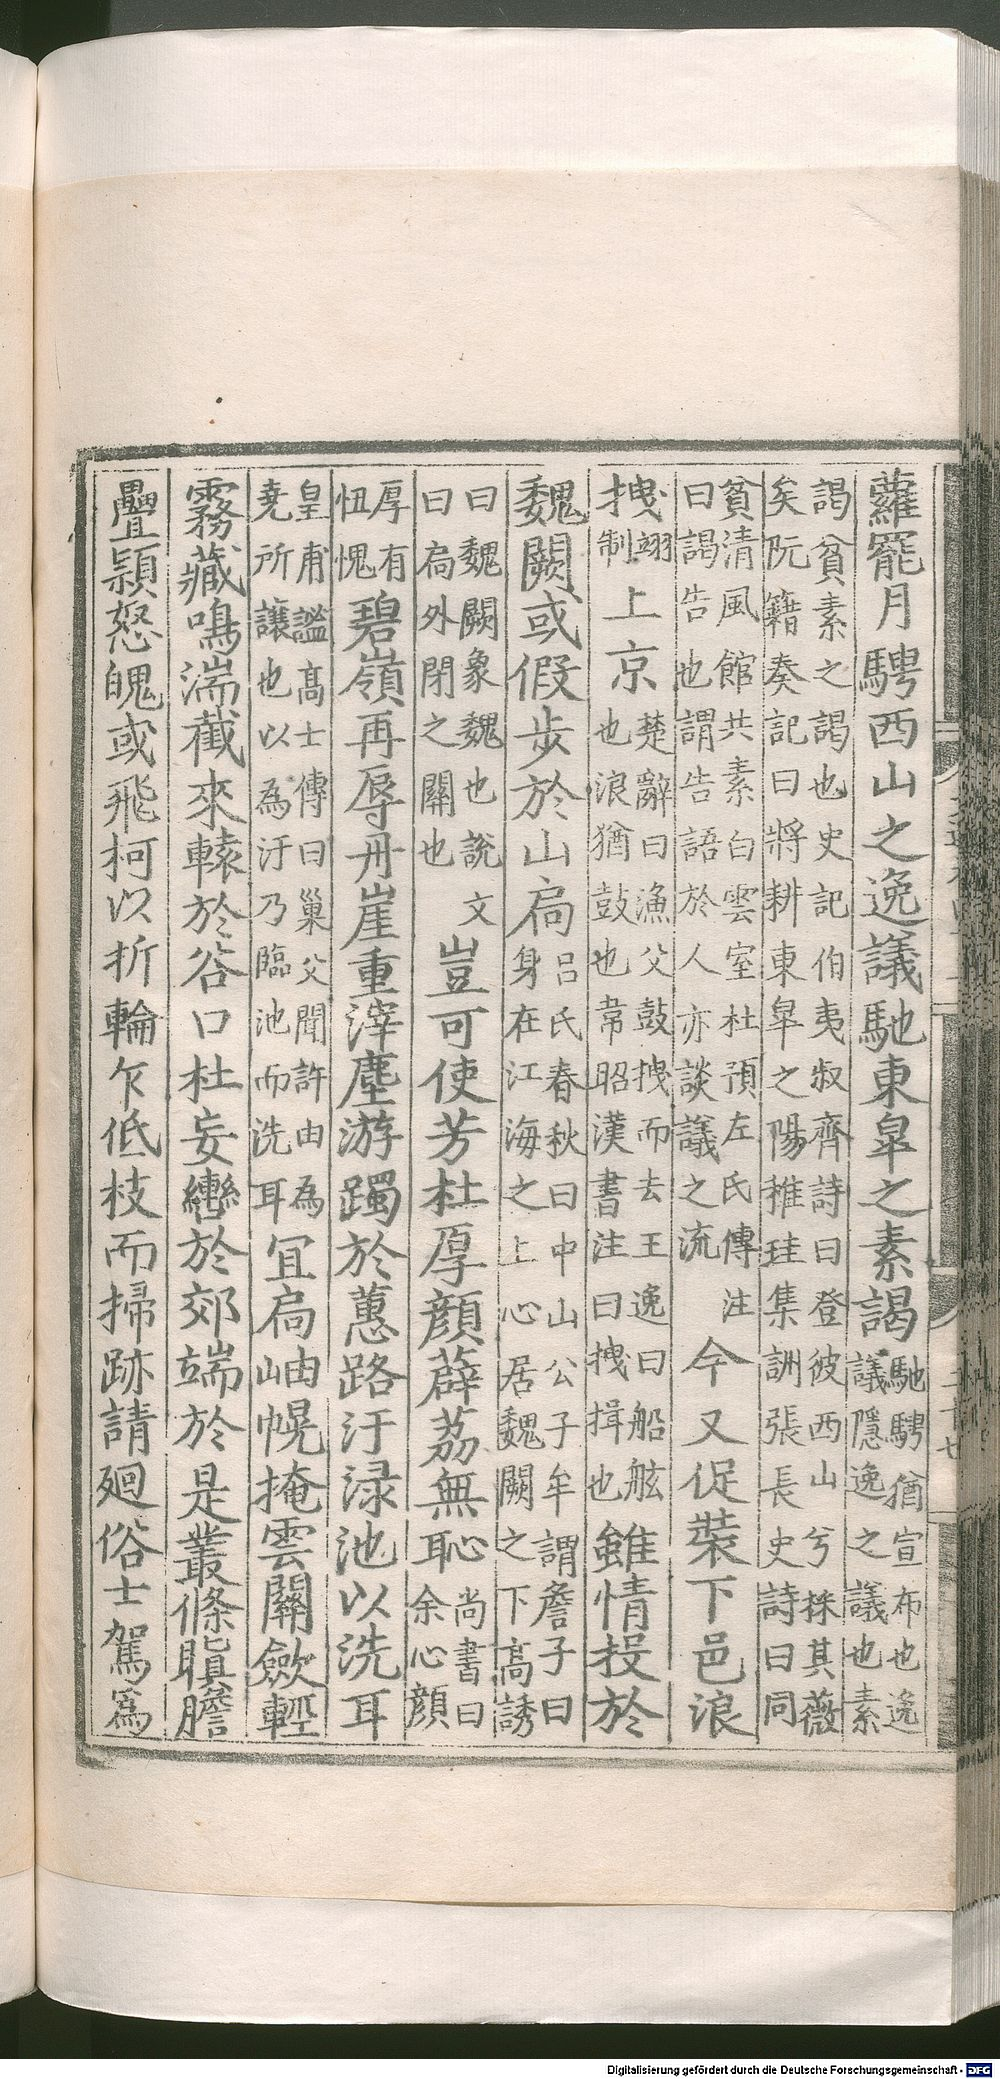 蘿罷月騁西山之逸議馳東皐之素謁馳騁猶宣布也逸
議隱逸之議也素
謁貧素之謁也史記伯夷叔齊詩曰登彼西山兮採其薇
矣阮籍奏記曰將耕東皐之陽推珪集詶張長史詩曰同
貧清風館共素白雲室杜預左氏傳注
曰謁告也謂告語於人亦談議之流
今又促裝下邑浪
拽翊制上京楚辭曰漁父鼓拽而去王逸曰船舷
也浪猶鼓也韋昭漢書注曰拽揖也
雖情投於
魏闕或假步於山扃呂氏春秋曰中山公子牟謂詹子曰
身在江海之上心居魏闕之下高誘
曰魏闕象魏也說文
曰扃外閉之關也
豈可使芳杜厚顏薜荔無恥尚書曰
余心顏
厚有
忸愧
碧嶺再辱丹崖重滓塵游躅於蕙路汙渌池以洗耳
皇甫謐高士傳曰巢父聞許由為
堯所讓也以為汙乃臨池而洗耳
宜扃岫幌掩雲關歛輕
霧藏鳴湍截來轅於谷口杜妄轡於郊端於是叢條瞋膽
疊穎怒魄或飛柯以折輪乍低枝而掃跡請廻俗士駕爲
Digitalisierung gefördert durch die Deutsche Forschungsgemeinschaft - DFG